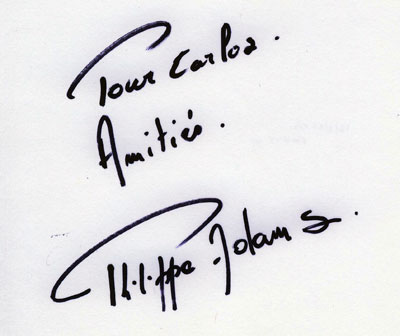 Pour Carlos.
Amitiés.
Philippe Adams.